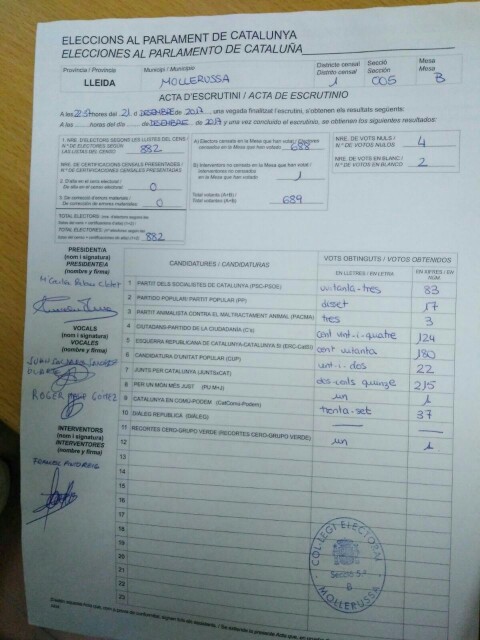 ELECCIONS AL PARLAMENT DE CATALUNYA
ELECCIONES AL PARLAMENTO DE CATALUÑA
Província / Provincia
LLEIDA
Municipi / Municipio
MOLLERUSSA
Districte censal
Distrito censal
1
Secció
Sección
005
Mesa
Mesa
B
ACTA D'ESCRUTINI / ACTA DE ESCRUTINIO
A les 22:51 hores del 21 d DESEMBRE de 2017, una vegada finalitzat l'escrutini, s'obtenen els resultats següents:
A las hores del de DESEMBRE de 2017 y una vez concluido el escrutinio, se obtienen los siguientes resultados:
1. NRE. D'ELECTORS SEGONS LES LLISTES DEL CENS /
N.º DE ELECTORES SEGÚN
LAS LISTAS DEL CENSO
882
NRE. DE CERTIFICACIONS CENSALS PRESENTADES /
N.º DE CERTIFICACIONES CENSALES PRESENTADAS
2. D'alta en el cens electoral /
De alta en el censo electoral
0
3. De correcció d'errors materials /
De corrección de errores materiales
0
TOTAL ELECTORS
TOTAL ELECTORES
882
A) Electors censats en la Mesa que han votat / Electores
censados en la Mesa que han votado
688
B) Interventors no censats en la Mesa que han votat /
Interventores no censados
en la Mesa que han votado
1
Total votants (A+B) /
Total votantes (A+B)
689
NRE. DE VOTS NULS /
N.º DE VOTOS NULOS
4
NRE. DE VOTS EN BLANC /
N.º DE VOTOS EN BLANCO
2
PRESIDENT/A
(nom i signatura)
PRESIDENTE/A
(nombre y firma)
VOCALS
(nom i signatura)
VOCALES
(nombre y firma)
ROGER GÓMEZ
INTERVENTORS
(nom i signatura)
INTERVENTORES
(nombre y firma)
CANDIDATURES / CANDIDATURAS
VOTS OBTINGUTS / VOTOS OBTENIDOS
EN LLETRES / EN LETRA
EN XIFRES / EN NÚM.
1 PARTIT DELS SOCIALISTES DE CATALUNYA (PSC-PSOE) vuitanta-tres 83
2 PARTIDO POPULAR/ PARTIT POPULAR (PP) disset 17
3 PARTIT ANIMALISTA CONTRA EL MALTRACTAMENT ANIMAL (PACMA) tres 3
4 CIUTADANS-PARTIDO DE LA CIUDADANÍA (C's) cent vint-i-quatre 124
5 ESQUERRA REPUBLICANA DE CATALUNYA-CATALUNYA SÍ (ERC-CatSÍ) cent vuitanta 180
6 CANDIDATURA D'UNITAT POPULAR (CUP) vint-i-dos 22
7 JUNTS PER CATALUNYA (JUNTSxCAT) dos-cents quinze 215
8 PER UN MÓN MÉS JUST (PUM+J) un 1
9 CATALUNYA EN COMÚ-PODEM (CatComú-Podem) trenta-set 37
10 DIÀLEG REPÚBLICA (DIÀLEG)
11 RECORTES CERO-GRUPO VERDE (RECORTES CERO-GRUPO VERDE) un 1
12
13
14
15
16
17
18
19
20
21
22
23
COL·LEGI ELECTORAL
Secció 5ª
B
MOLLERUSSA